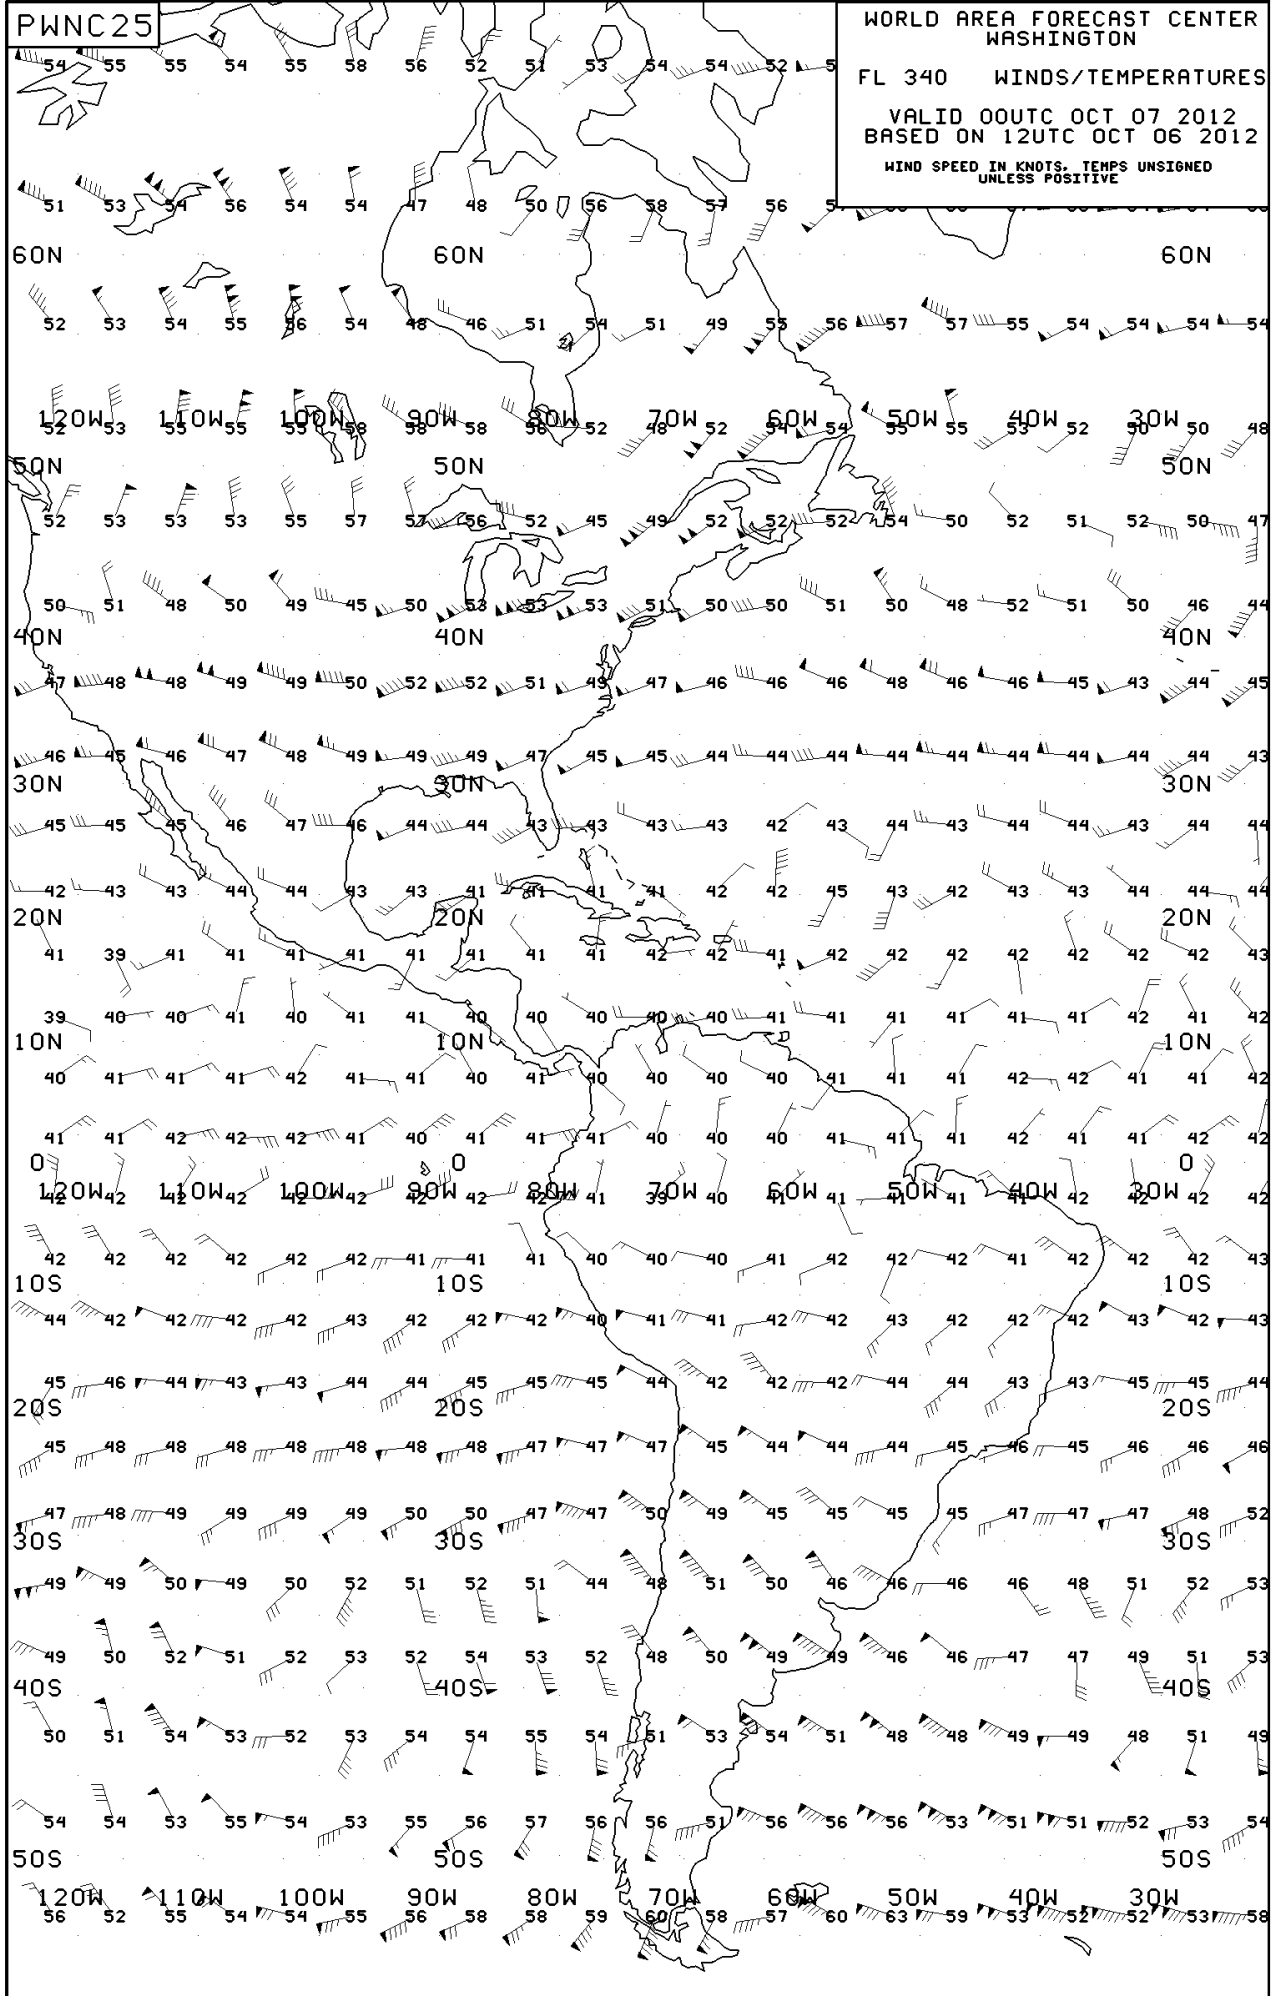 PWNC25
WORLD AREA FORECAST CENTER
WASHINGTON
FL 340 WINDS/TEMPERATURES
VALID 00UTC OCT 07 2012
BASED ON 12UTC OCT 06 2012
WIND SPEED IN KNOTS, TEMPS UNSIGNED
UNLESS POSITIVE
54 55 55 54 55 58 56 52 51 53 54 54 52
51 53 54 56 54 54 47 48 50 56 58 57 56
60N 60N 60N
52 53 54 55 56 54 48 46 51 54 51 49 55 56 57 57 55 54 54 54 54
120W 110W 100W 90W 80W 70W 60W 50W 40W 30W
52 53 55 55 55 58 58 58 56 52 48 52 54 54 55 55 53 52 50 50 48
50N 50N 50N
52 53 53 53 55 57 57 56 52 45 49 52 52 52 54 50 52 51 52 50 47
50 51 48 50 49 45 50 53 53 53 51 50 50 51 50 48 52 51 50 46 44
40N 40N 40N
47 48 48 49 49 50 52 52 51 49 47 46 46 46 48 46 46 45 43 44 45
46 45 46 47 48 49 49 49 47 45 45 44 44 44 44 44 44 44 44 44 43
30N 30N 30N
45 45 45 46 47 46 44 44 43 43 43 43 42 43 44 43 44 44 43 44 44
42 43 43 44 44 43 43 41 41 41 41 42 42 45 43 42 43 43 44 44 44
20N 20N 20N
41 39 41 41 41 41 41 41 41 41 42 42 41 42 42 42 42 42 42 42 43
39 40 40 41 40 41 41 40 40 40 40 40 41 41 41 41 41 41 42 41 42
10N 10N 10N
40 41 41 41 42 41 41 40 41 40 40 40 40 41 41 41 42 42 41 41 42
41 41 42 42 42 41 40 41 41 41 40 40 40 41 41 41 42 41 41 42 42
0 0 0
120W 110W 100W 90W 80W 70W 60W 50W 40W 30W
42 42 42 42 42 42 42 42 42 41 39 40 41 41 41 41 41 42 42 42 42
42 42 42 42 42 42 41 41 41 40 40 40 41 42 42 42 41 42 42 42 43
10S 10S 10S
44 42 42 42 42 43 42 42 42 40 41 41 42 42 43 42 42 42 43 42 43
45 46 44 43 43 44 44 45 45 45 44 42 42 42 44 44 43 43 45 45 44
20S 20S 20S
45 48 48 48 48 48 48 48 47 47 47 45 44 44 44 45 46 45 46 46 46
47 48 49 49 49 49 50 50 47 47 50 49 45 45 45 45 47 47 47 48 52
30S 30S 30S
49 49 50 49 50 52 51 52 51 44 48 51 50 46 46 46 46 48 51 52 53
49 50 52 51 52 53 52 54 53 52 48 50 49 49 46 46 47 47 49 51 53
40S 40S 40S
50 51 54 53 52 53 54 54 55 54 51 53 54 51 48 48 49 49 48 51 49
54 54 53 55 54 53 55 56 57 56 56 51 56 56 56 53 51 51 52 53 54
50S 50S 50S
120W 110W 100W 90W 80W 70W 60W 50W 40W 30W
56 52 55 54 54 55 56 58 58 59 60 58 57 60 63 59 53 52 52 53 58